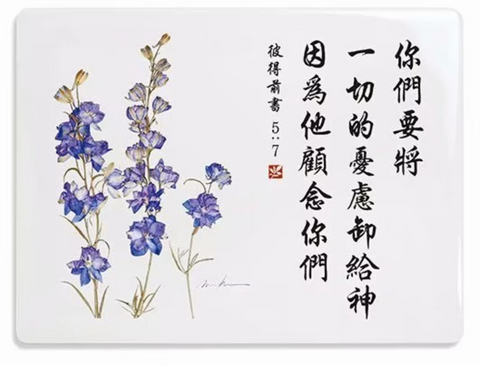 你們要將
一切的憂慮卸給神
因爲他顧念你們
彼得前書 5:7